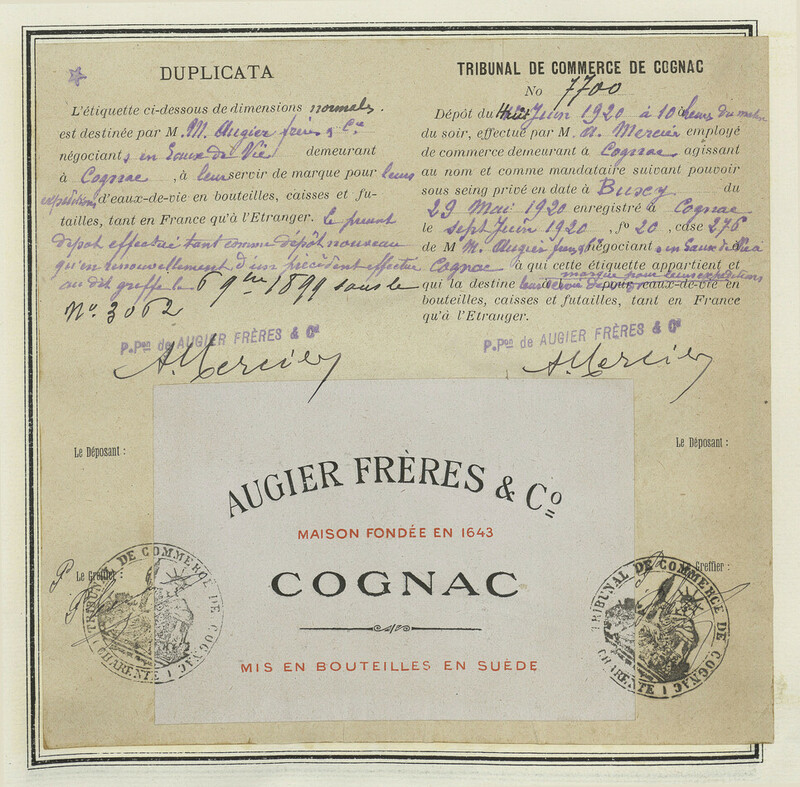 DUPLICATA
L'étiquette ci-dessous de dimensions normales.
est destinée par M. M. Augier frères & Cie
négociants en Eaux de Vie demeurant
à Cognac, à leur servir de marque pour leurs
expéditions d'eaux-de-vie en bouteilles, caisses et fu-
tailles, tant en France qu'à l'Etranger. Le présent
dépôt effectué tant comme dépôt nouveau
qu'en renouvellement d'un précédent effectué
au dit greffe le 6 9bre 1899 sous le
No. 3062
P. Pon de AUGIER FRÈRES & Co
A. Mercier
Le Déposant :
Le Greffier :
TRIBUNAL DE COMMERCE DE COGNAC
No 7700
Dépôt du Juin 1920 à 10 heures du matin
du soir, effectué par M. A. Mercier employé
de commerce demeurant à Cognac agissant
au nom et comme mandataire suivant pouvoir
sous seing privé en date à du
29 Mai 1920 enregistré à Cognac
le sept Juin 1920, fo 20, case 276
de M M. Augier frères & Cie négociants en Eaux de Vie à
Cognac à qui cette étiquette appartient et
qui la destine marque pour leurs expéditions
à leur servir de pour eaux-de-vie en
bouteilles, caisses et futailles, tant en France
qu'à l'Etranger.
P. Pon de AUGIER FRÈRES & Co
A. Mercier
Le Déposant :
Greffier :
AUGIER FRÈRES & Co
MAISON FONDÉE EN 1643
COGNAC
MIS EN BOUTEILLES EN SUÈDE
TRIBUNAL DE COMMERCE DE COGNAC
(CHARENTE)
TRIBUNAL DE COMMERCE DE COGNAC
(CHARENTE)